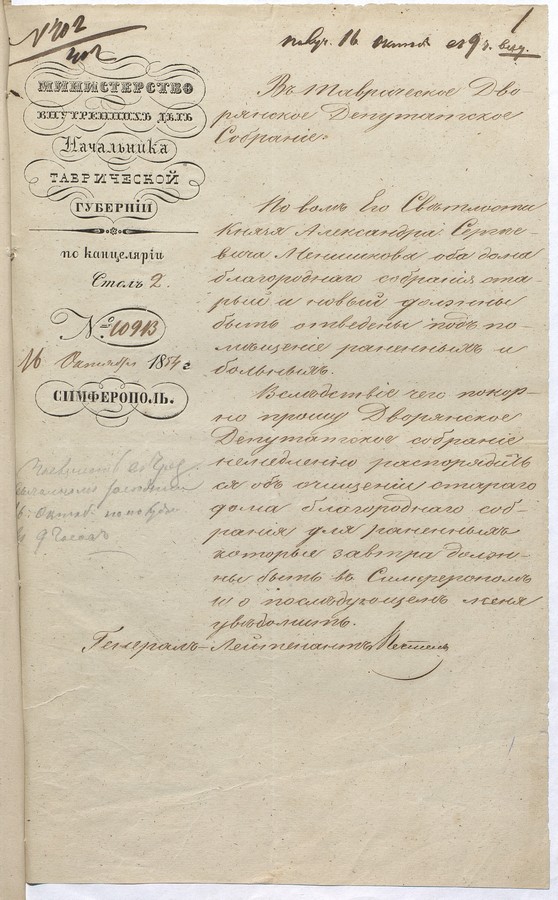 № 402
402
1
получ. 16 октяб. въ 9 ч. веч.
МИНИСТЕРСТВО
ВНУТРЕННИХЪ ДѢЛЪ
Начальника
ТАВРИЧЕСКОЙ
ГУБЕРНІИ
по канцеляріи
Столъ 2.
№ 10913
16 Октября 1854 г
СИМФЕРОПОЛЬ.
Въ Таврическое Дво-
рянское Депутатское
Собраніе.
По волѣ Его Свѣтлости
Князя Александра Сергѣе-
вича Меншикова оба дома
благороднаго собранія ста-
рый и новый должны
быть отведены подъ по-
мѣщеніе раненымъ и
больнымъ.
Вслѣдствіе чего покор-
но прошу Дворянское
Депутатское собраніе
немедленно распорядить
ся объ очищеніи стараго
дома благороднаго соб-
ранія для раненныхъ
которые завтра долж-
ны быть въ Симферополѣ
и о послѣдующемъ меня
увѣдомить.
Генералъ-Лейтенантъ Пестель
октяб.
9 часов